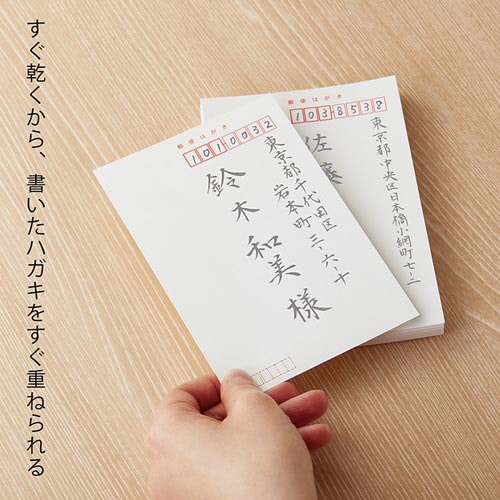 すぐ乾くから、書いたハガキをすぐ重ねられる
郵便はがき
1010032
東京都千代田区
岩本町 三、六、十
鈴木和美様
郵便はがき
1038538
東京都中央区日本橋小網町七、二
佐藤